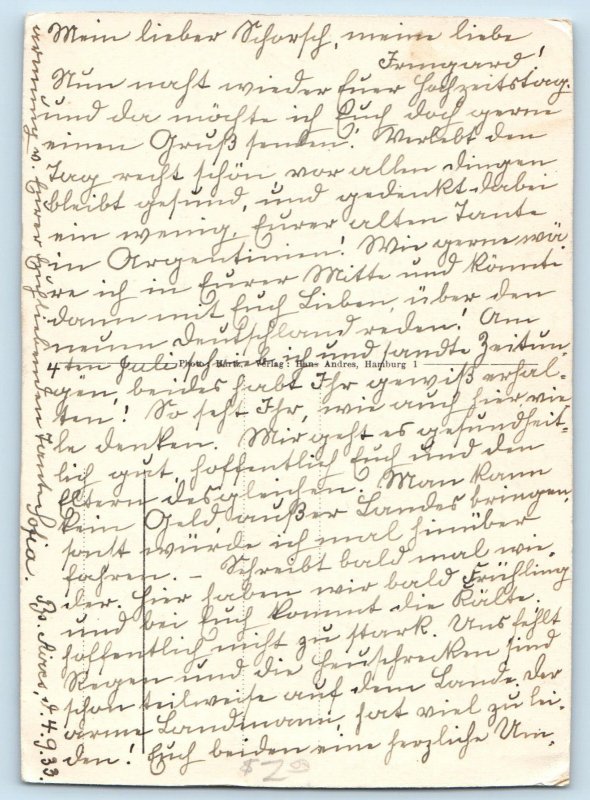 Mein lieber Schorsch, meine liebe
Irmgard!
Nun naht wieder Euer Hochzeitstag.
und da möchte ich Euch doch gerne
einen Gruß senden! Verlebt den
Tag recht schön vor allen dingen
bleibt gesund, und gedenkt dabei
ein wenig, Eurer alten Tante
in Argentinien! Wie gerne wä
re ich in Eurer Mitte und könnte
dann mit Euch Lieben, über den
neuen Deutschland reden! Am
4ten Juli schrieb ich und sandte Zeitun-
Photo: Verlag: Hans Andres, Hamburg 1
gen, beides habt Ihr gewiß erhal-
ten! So seht Ihr, wie auch hier vie
le denken. Mir geht es gesundheit-
lich gut, hoffentlich Euch und den
Eltern desgleichen. Man kann
kein Geld außer Landes bringen,
sonst würde ich mal hinüber
fahren. – Schreibt bald mal wie-
der. Hier haben wir bald Frühling
und bei Euch kommt die Kälte.
hoffentlich nicht zu stark. Uns fehlt
Regen und die Heuschrecken sind
schon teilweise auf dem Lande. Der
arme Landmann, hat viel zu lei-
den! Euch beiden eine herzliche Um-
armung v. Eurer Euch liebenden Tante Sofia. Bs. Aires, d. 4.9.33.
$2